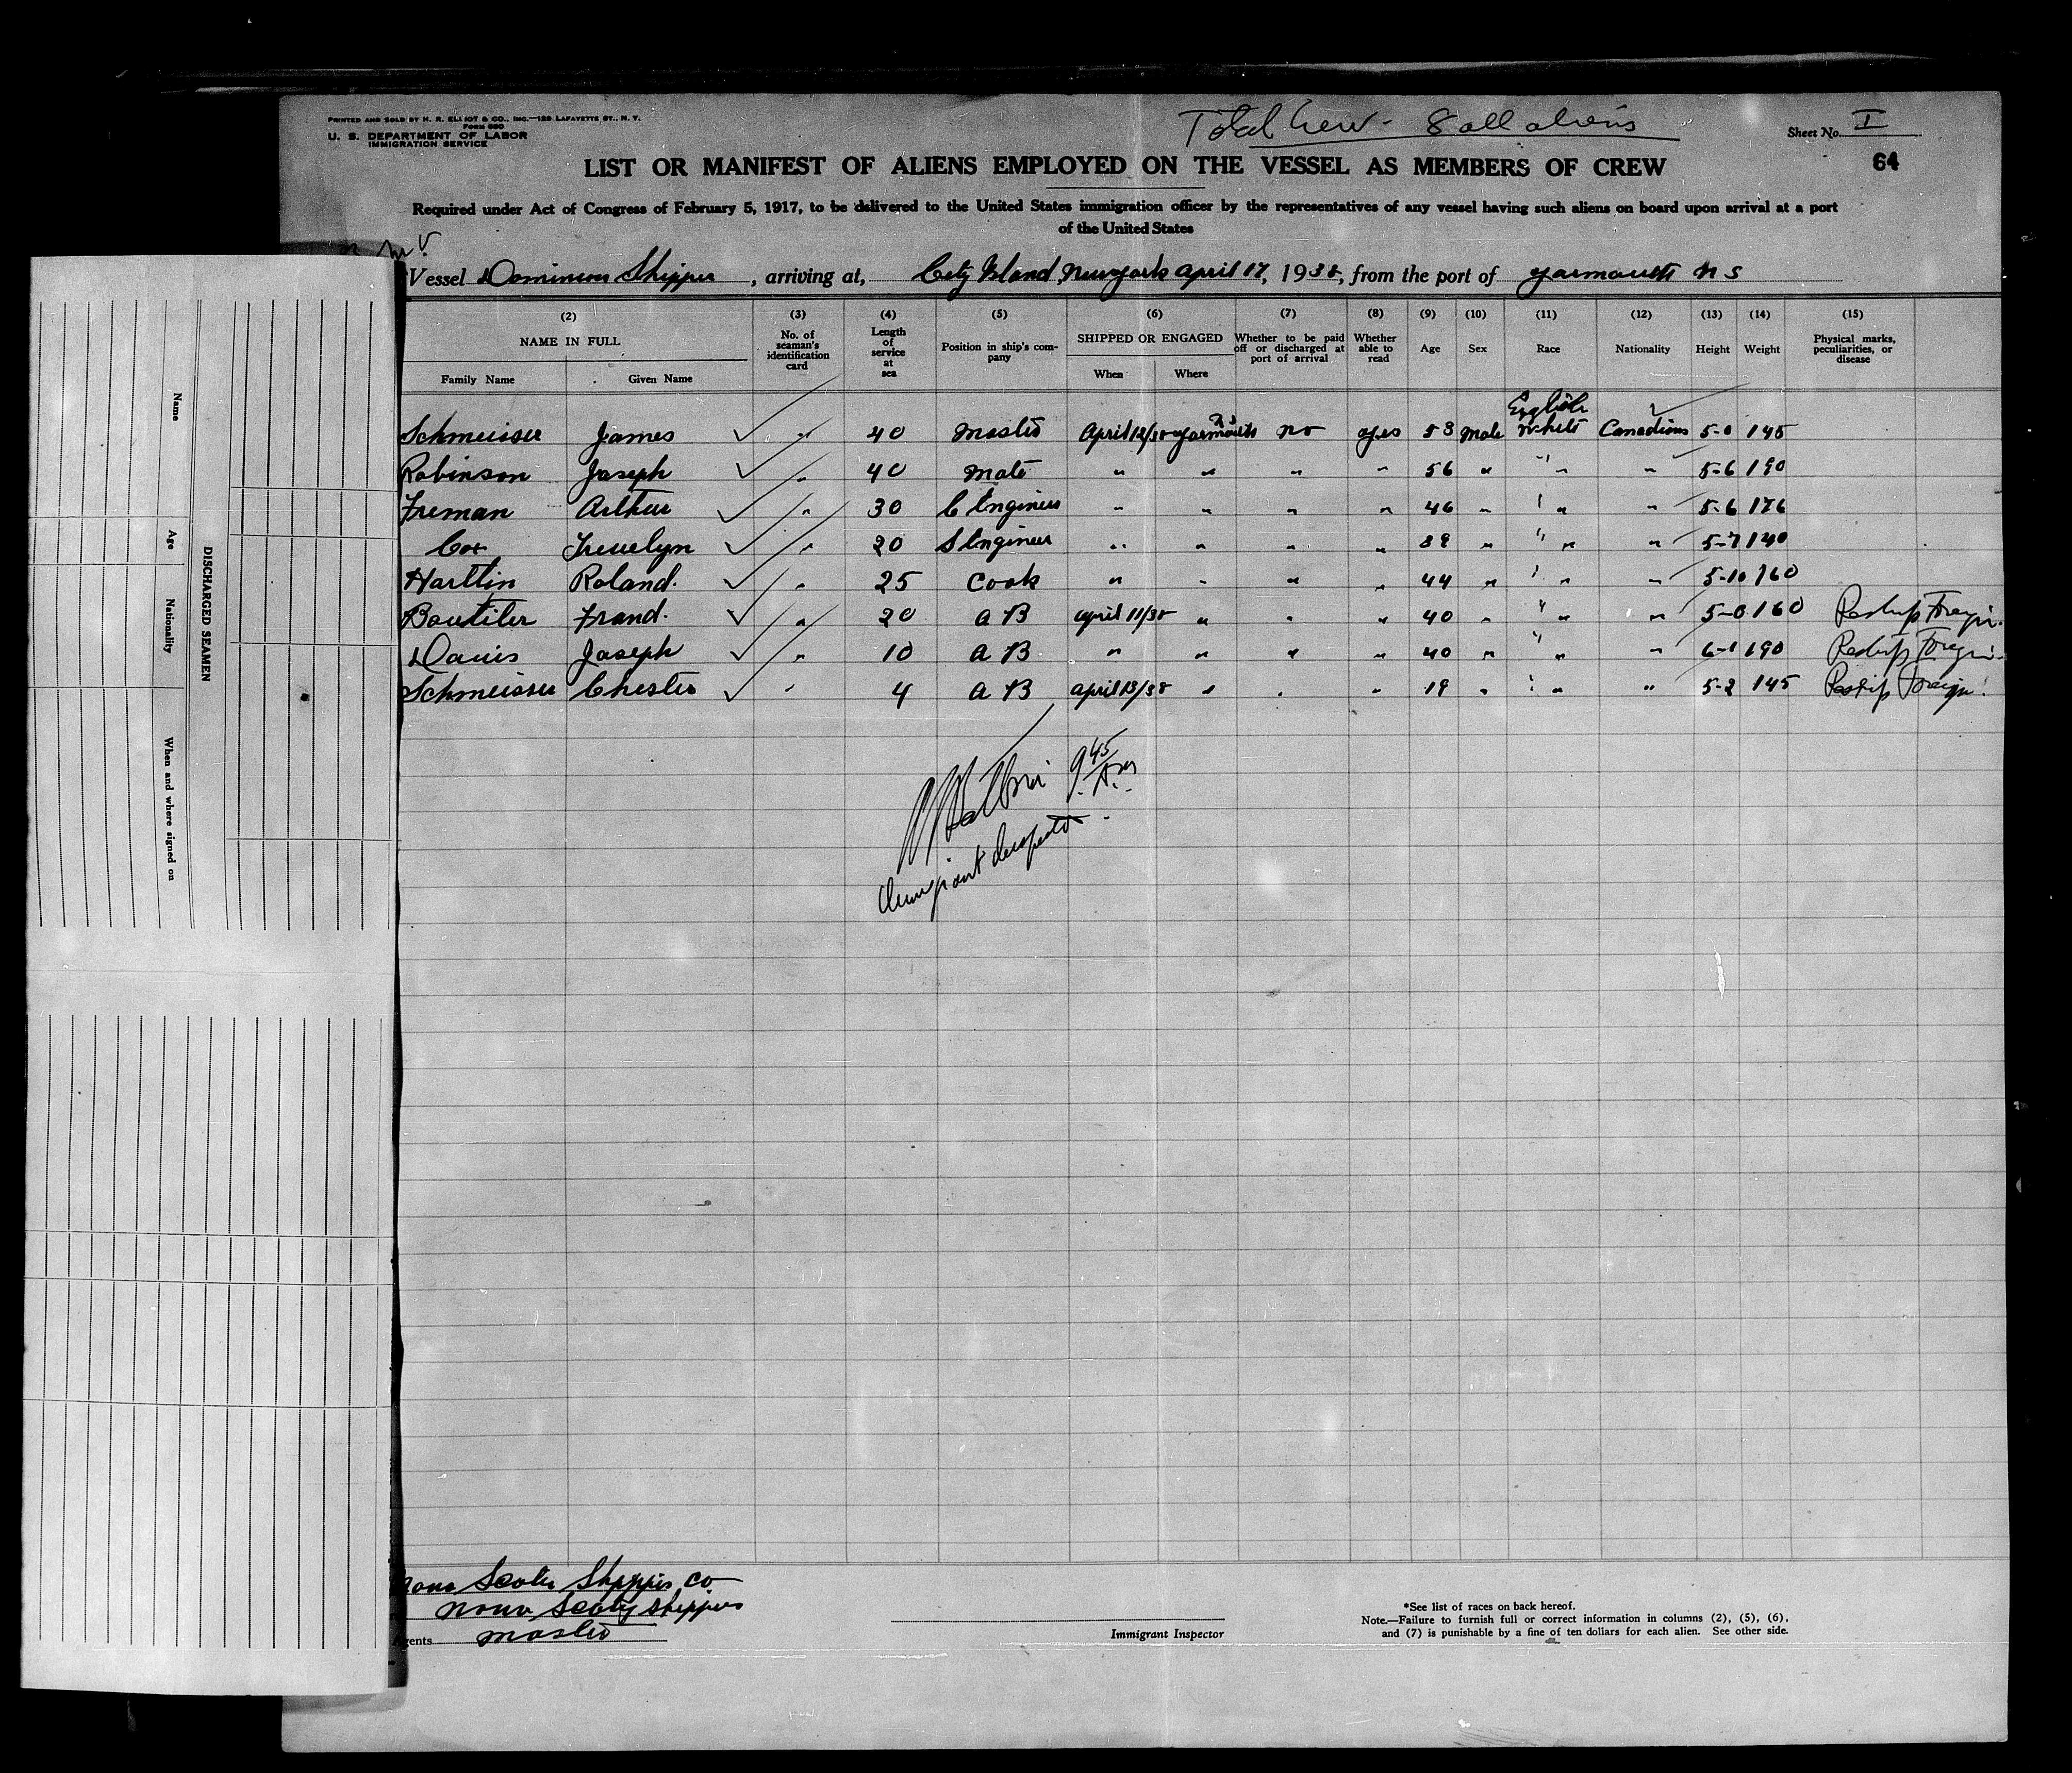 PRINTED AND SOLD BY H. R. ELLIOT & CO., INC.—129 LAFAYETTE ST., N. Y.
FORM 680
U. S. DEPARTMENT OF LABOR
IMMIGRATION SERVICE
Total Crew - 8 all aliens
Sheet No. I
64
LIST OR MANIFEST OF ALIENS EMPLOYED ON THE VESSEL AS MEMBERS OF CREW
Required under Act of Congress of February 5, 1917, to be delivered to the United States immigration officer by the representatives of any vessel having such aliens on board upon arrival at a port
of the United States
M.V.
Vessel Dominion Shipper, arriving at, City Island New york april 17, 1938, from the port of yarmouth N S
(2) (3) (4) (5) (6) (7) (8) (9) (10) (11) (12) (13) (14) (15)
NAME IN FULL No. of seaman's identification card Length of service at sea Position in ship's company SHIPPED OR ENGAGED Whether to be paid off or discharged at port of arrival Whether able to read Age Sex Race Nationality Height Weight Physical marks, peculiarities, or disease
Family Name Given Name When Where
Schmeisser James " 40 Master April 12/38 yarmouth N S no yes 53 Male English White Canadians 5-0 145
Robinson Joseph " 40 Mate " " " " 56 " " " " 5-6 190
Freman Arthur " 30 C Engineer " " " " 46 " " " " 5-6 176
Cox Treuelyn " 20 S Engineer " " " " 39 " " " " 5-7 140
Harttin Roland. " 25 Cook " " " " 44 " " " " 5-10 160
Boutiler Frand. " 20 A B april 11/38 " " " 40 " " " " 5-8 160 Reship Foreign.
Davis Joseph " 10 A B " " " " 40 " " " " 6-1 190 Reship Foreign.
Schmeisser Chester " 4 A B april 13/38 " " " 19 " " " " 5-2 145 Reship Foreign.
9 45 A.M.
Name
Age
Nationality
When and where signed on
DISCHARGED SEAMEN
Nova Scotia Shippers Co
Nova Scotia Shippers
Agents Master
Immigrant Inspector
*See list of races on back hereof.
Note.—Failure to furnish full or correct information in columns (2), (5), (6),
and (7) is punishable by a fine of ten dollars for each alien. See other side.